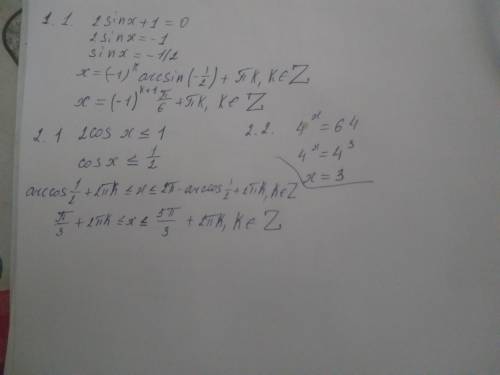 1.1. 2sinx+1=0
2sinx=-1
sinx=-1/2
x=(-1)^k arcsin(-1/2)+πk, k∈Z
x=(-1)^{k+1} π/6+πk, k∈Z
2.1 2cos x≤1
cosx≤1/2
arccos 1/2+2πk≤x≤2π-arccos 1/2+2πk, k∈Z
π/3+2πk≤x≤5π/3+2πk, k∈Z
2.2. 4^x=64
4^x=4^3
x=3